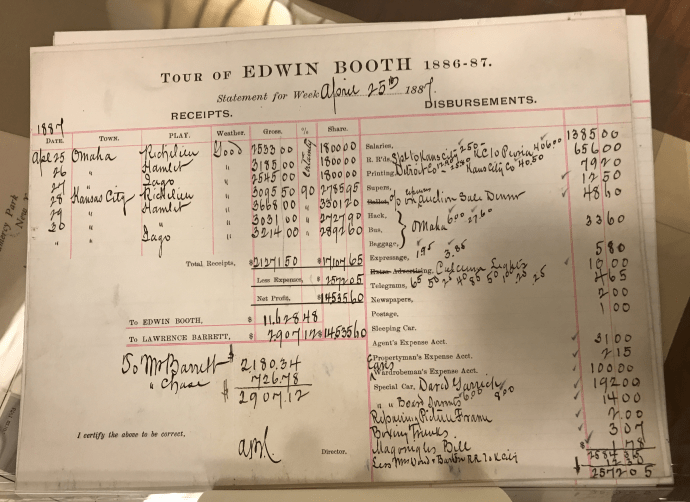 TOUR OF EDWIN BOOTH 1886-87.
Statement for Week April 25th 1887.
RECEIPTS.
DISBURSEMENTS.
1887
DATE. TOWN. PLAY. Weather. Gross. % Share.
Apl 25 Omaha Richelieu Good 2533 00 1800 00
26 " Hamlet " 3185 00 1800 00
27 " Iago " 2545 00 1800 00
28 Kansas City Richelieu " 3095 50 90 2785 95
29 " Hamlet " 3668 00 " 3301 20
30 " " 3031 00 " 2727 90
" " Iago " 3214 00 " 2892 60
Total Receipts, $21271 50 $17107 65
Less Expenses, $2572 05
Net Profit, $14535 60
To EDWIN BOOTH, $ 11628 48
To LAWRENCE BARRETT, $ 2907 12 $14535 60
To Mr Barrett $ 2180.34
" Chase 726.78
$ 2907.12
I certify the above to be correct,
Director.
Salaries, 1385 00
R. R'ds, 656 00
Printing, Detroit Co Kansas City Co 40 50 79 20
Supers, 12 50
% on Auction Sale Denver 48 60
Hack,
Bus, Omaha 6 00 27 60 33 60
Baggage,
Expressage, 1 95 3.85 5 80
Advertising, Calcium Lights 16 00
Telegrams, 65 50 25 40 80 50 25 4 65
Newspapers, 2 00
Postage, 1 00
Sleeping Car.
Agent's Expense Acct. 31 00
Propertyman's Expense Acct. 2 15
Wardrobeman's Expense Acct. 100 00
Special Car, David Garrick 192 00
" " Board 6 00 8 00 14 00
Repairing Picture Frame 2 00
Boxing Trunks 3 07
Magonigles Bill 1 78
$ 2584
Less 12 30
$ 2572 05